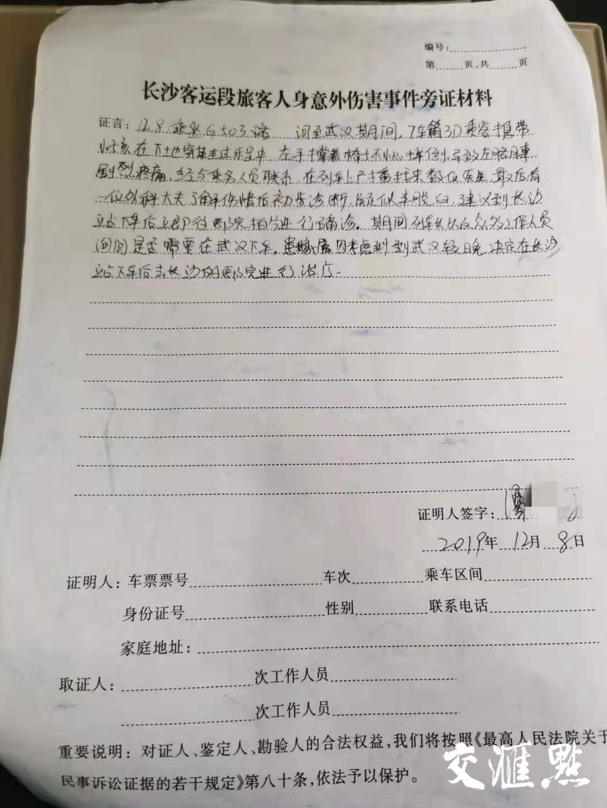 编号:
第 页,共 页
长沙客运段旅客人身意外伤害事件旁证材料
证言: 12.8 乘坐G403次 至武汉期间,7车厢3D乘客携带
小孩在下地穿鞋过程中,左手撑着椅子不小心摔倒,导致左胳膊
剧烈疼痛,经与乘务人员联系,在列车上广播找来数位医生,最后有
一位外科大夫了解伤情后初步诊断,疑似未脱臼,建议到长沙
站下车后立即往医院拍片进行确诊。期间列车长以及众多工作人员
询问是否需要在武汉下车。 家属因考虑到到武汉较晚,决定在长沙
站下车后去长沙的医院进行治疗。
证明人签字:
2019年 12月 8日
证明人: 车票票号 车次 乘车区间
身份证号 性别 联系电话
家庭地址:
取证人: 次工作人员
次工作人员
重要说明: 对证人、鉴定人、勘验人的合法权益,我们将按照《最高人民法院关于
民事诉讼证据的若干规定》第八十条,依法予以保护。
交汇点